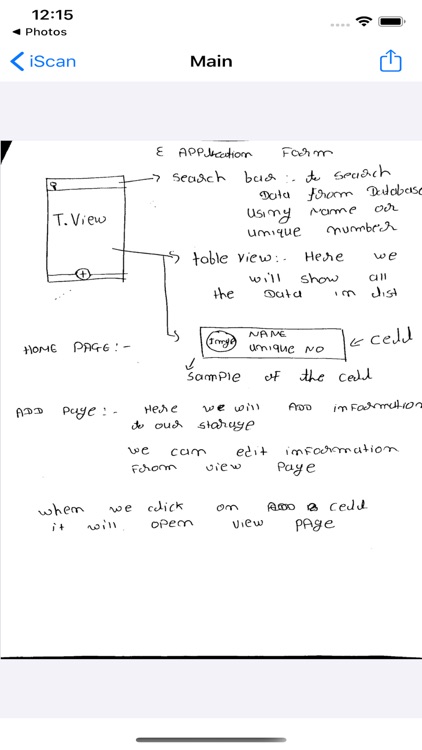 12:15
Photos
iScan
Main
E APPlication Form
search bar :- to search
Data from Database
using name or
unique number
T.View
table view :- Here we
will show all
the Data in list
Image
NAME
unique NO
cell
HOME PAGE :-
Sample of the cell
ADD Page :- Here we will ADD information
to our storage
we can edit information
From view Page
when we click on ADD cell
it will open view PAGE